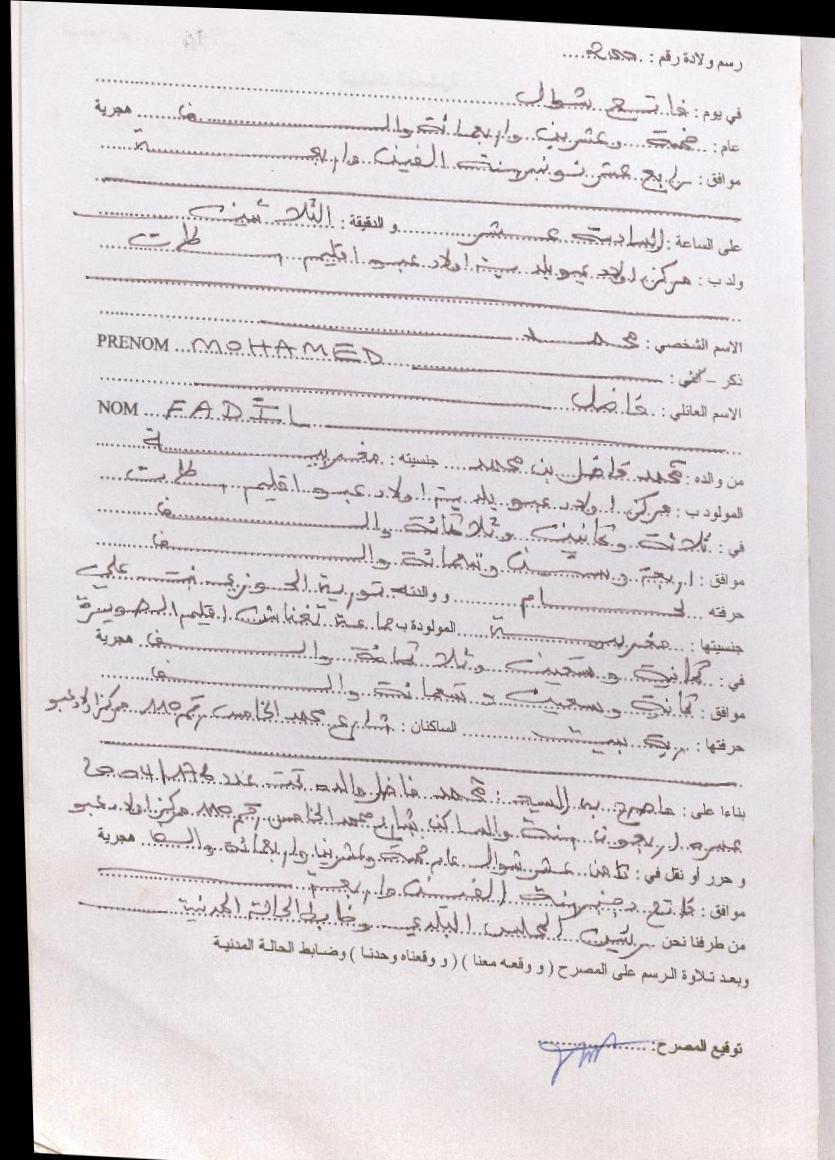 رسم ولادة رقم :
في يوم : فاتح شوال
عام : خمسة وعشرين واربعمائة والـــف هجرية
موافق : رابع عشر نونبر سنة الفين واربعـــة
على الساعة : الحادية عشر والدقيقة : الثلاثين
ولد ب : مركز اولاد عبو بلدية اولاد عبو اقليم سطات
الاسم الشخصي : محمد
PRENOM MOHAMED
ذكر –
الاسم العائلي : فاضل
NOM FADIL
من والده : محمد فاضل بن محمد جنسيته : مغربية
المولود ب : مركز اولاد عبو بلدية اولاد عبو اقليم سطات
في : ثلاثة وثمانين وثلاثمائة والـــف
موافق : اربعة وستين وتسعمائة والـــف
حرفته لحـــام ووالدته تورية الحوزي بنت علي
جنسيتها : مغربيـــة المولودة ب جماعة تفتاش اقليم الصويرة
في : ثمانية وتسعين وثلاثمائة والـــف هجرية
موافق : ثمانية وسبعين وتسعمائة والـــف
حرفتها : ربة بيت الساكنان : شارع محمد الخامس رقم مركز اولاد عبو
بناءا على : ماصرح به السيد : محمد فاضل والده تحت عدد
عمره اربعون سنة والساكن شارع محمد الخامس رقم مركز اولاد عبو
و حرر أو نقل في : ثامن عشر شوال عام خمسة وعشرين واربعمائة والف هجرية
موافق : فاتح دجنبر سنة الفين واربعة
من طرفنا نحن رئيس المجلس البلدي وضابط الحالة المدنية
وبعد تلاوة الرسم على المصرح ( و وقعه معنا ) ( و وقعناه وحدنا ) وضابط الحالة المدنية
توقيع المصرح: